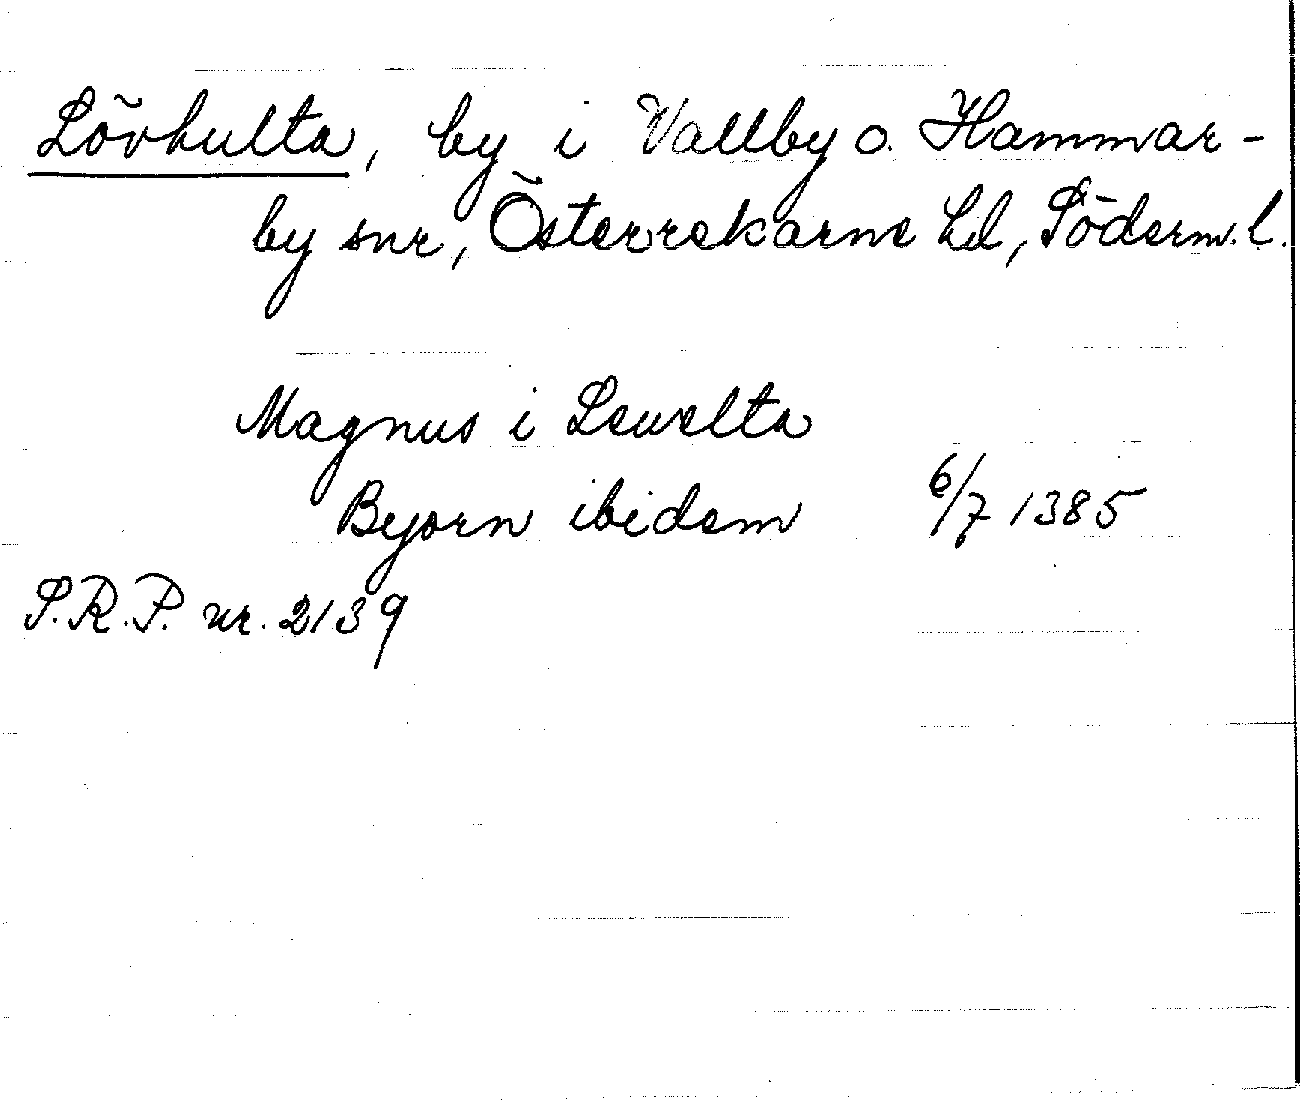 Lövhulta, by i Vallby o. Hammar-
by snr, Österrekarne hd, Söderm. l.
Magnus i Lewelta
Byorn ibidem 6/7 1385
S.R.P. nr. 2139